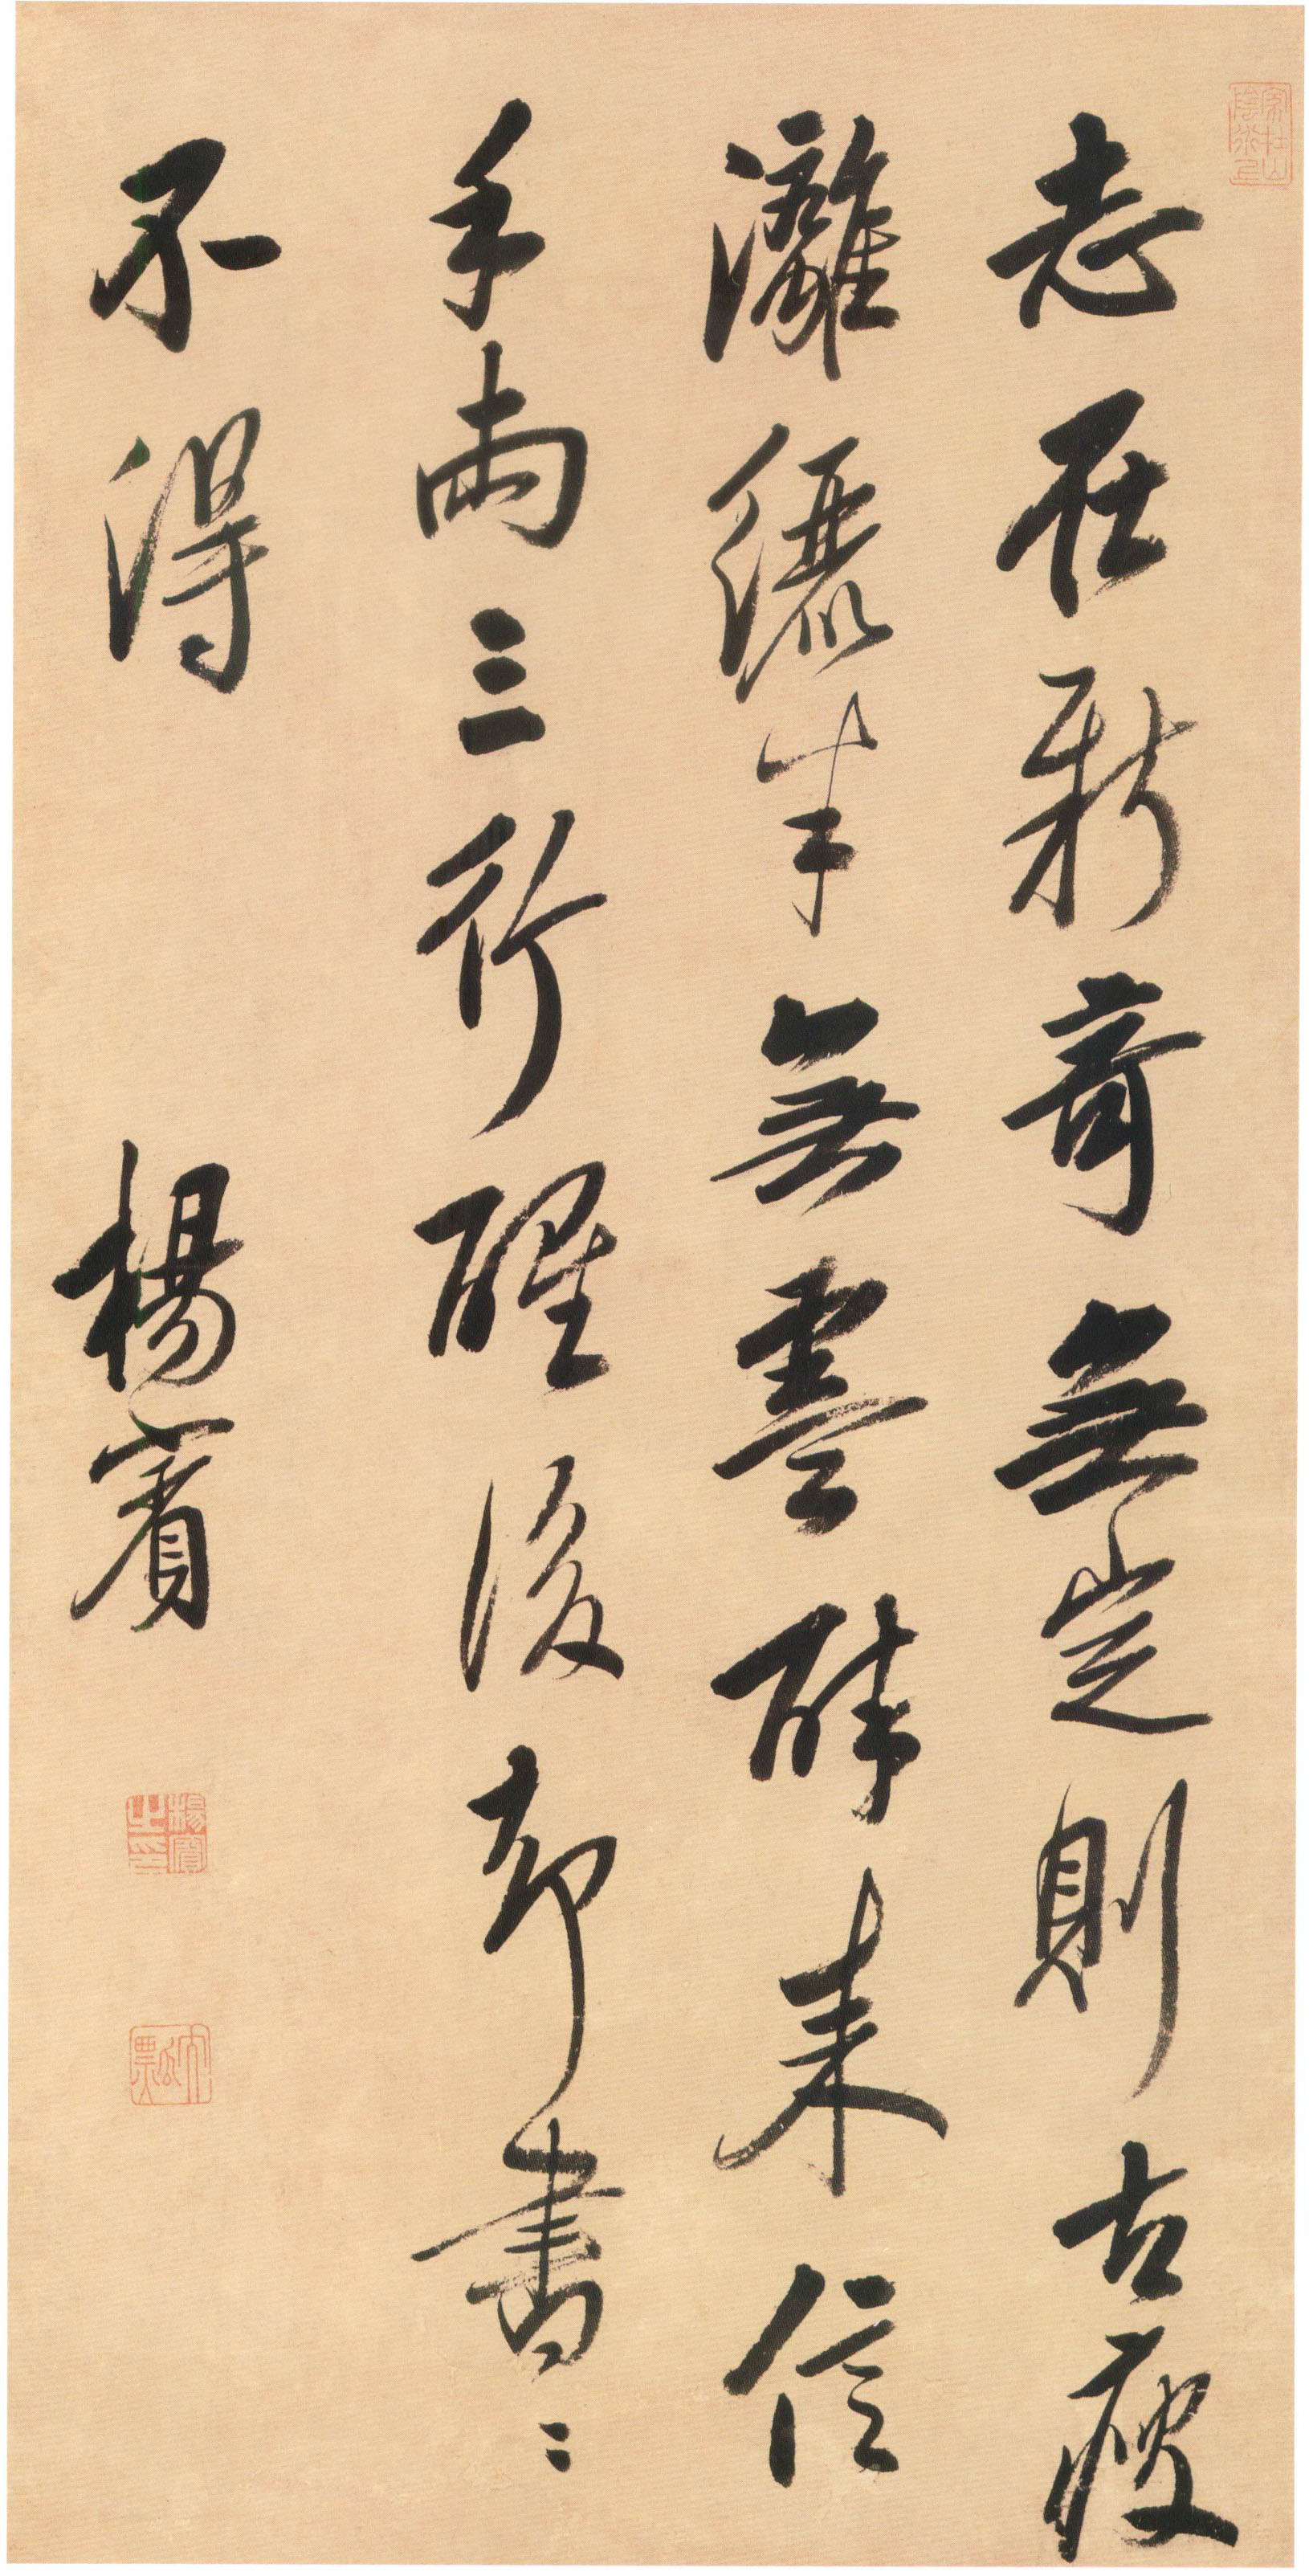 志在新奇無定則古瘦
灕纚半無墨醉來信
手兩三行醒後却書〻
不得
楊賓
楊賓之印
大瓢